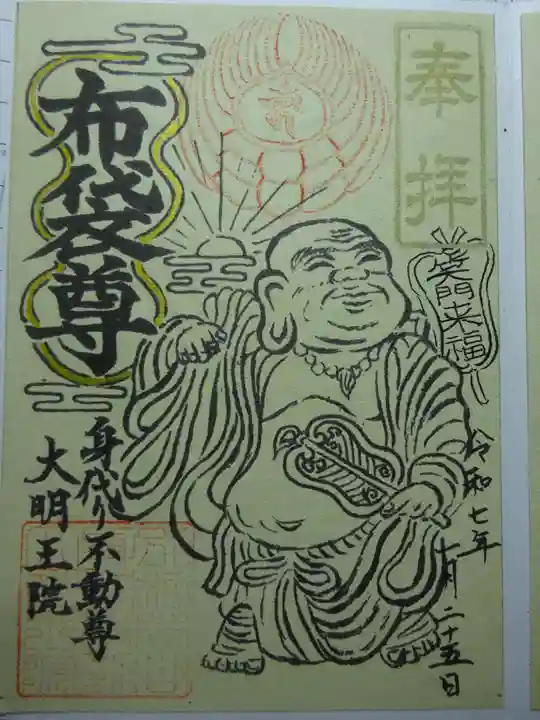 奉拝
布袋尊
笑門来福
令和七年
十月二十五日
身代り不動尊
大明王院